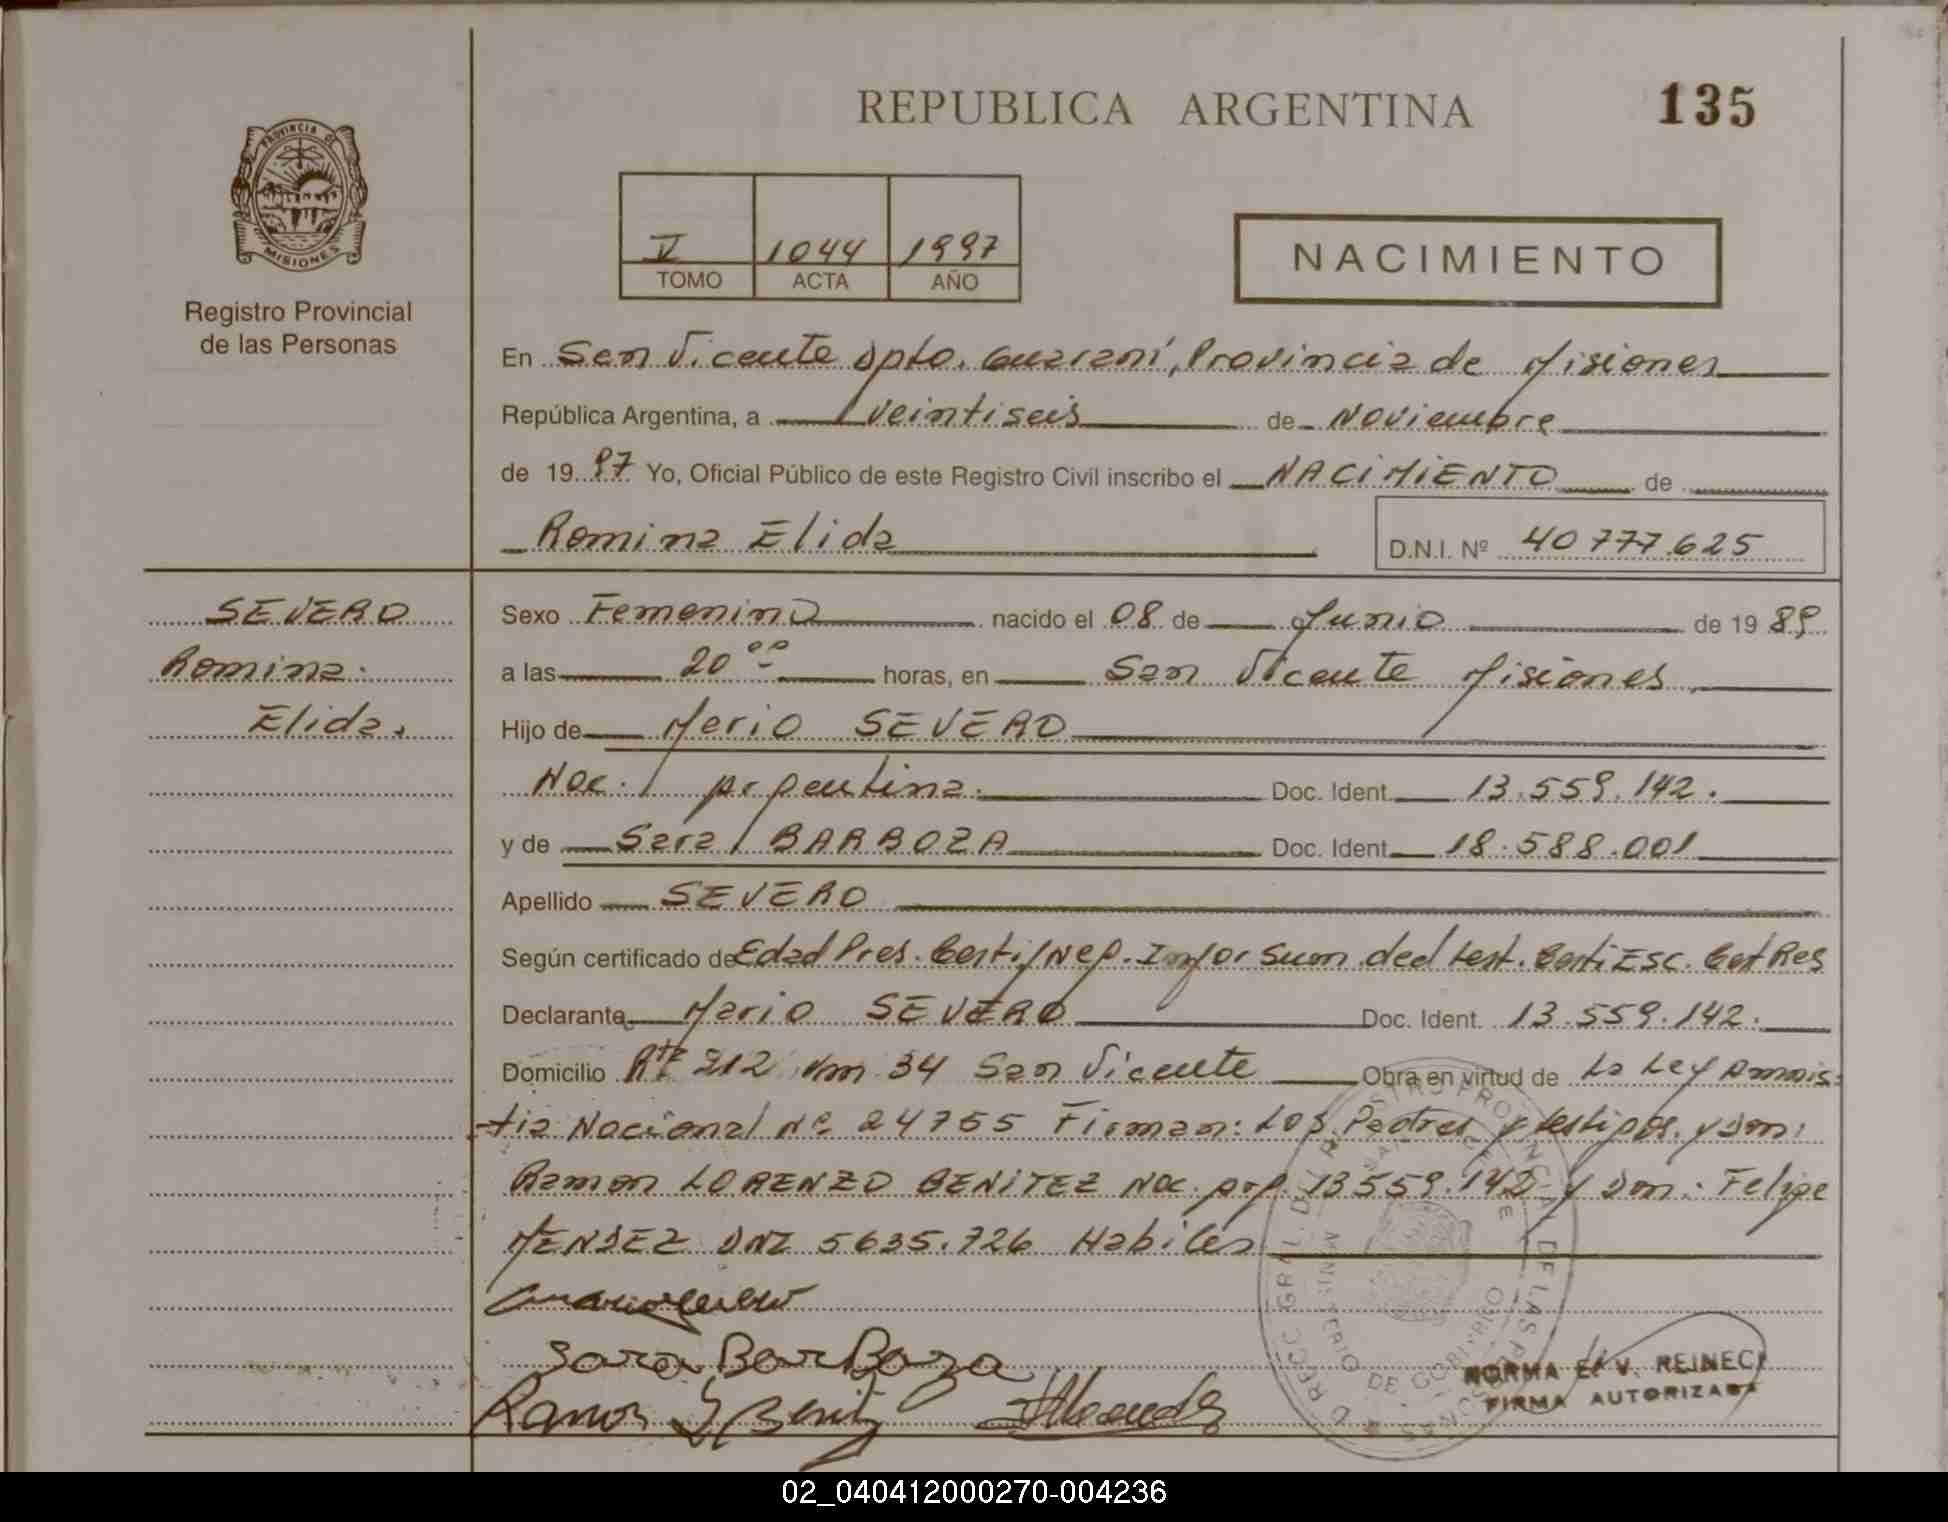 REPUBLICA ARGENTINA
135
PROVINCIA DE
MISIONES
Registro Provincial
de las Personas
V 1044 1997
TOMO ACTA AÑO
NACIMIENTO
En San Vicente Dpto. Guarani, Provincia de Misiones
República Argentina, a veintiseis de Noviembre
de 1997 Yo, Oficial Público de este Registro Civil inscribo el NACIMIENTO de
Romina Elida
D.N.I. Nº 40777625
SEVERO
Romina
Elida.
Sexo Femenino nacido el 08 de Junio de 1989
a las 20 00 horas, en San Vicente Misiones
Hijo de Mario SEVERO
Nac. Argentina. Doc. Ident. 13.559.142.
y de Sara BARBOZA Doc. Ident. 18.588.001
Apellido SEVERO
Según certificado de Edad Pres. Certif Neg. Infor Sum ded test. Certi Esc. Cert Res
Declarante Mario SEVERO Doc. Ident. 13.559.142.
Domicilio Rta 212 Km 34 San Vicente Obra en virtud de La Ley Amnis-
tia Nacional Nº 24755 Firman: Los Padres y testigos. y Don:
Ramon LORENZO BENITEZ Nac. arg. 13559.142 y Don: Felipe
MENDEZ DNI 5635.726 Habiles
Sara BarBoza
Ramon L Benitz
NORMA E. V. REINECK
FIRMA AUTORIZADA
MINISTERIO DE GOBIERNO
02_040412000270-004236